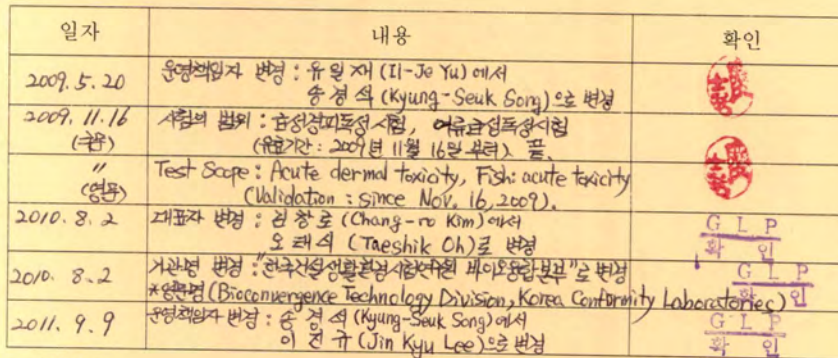 일자 내용 확인
2009. 5. 20 운영책임자 변경 : 유일재 (Il-Je Yu) 에서
송경석 (Kyung-Seuk Song)으로 변경
2009. 11. 16 시험의 범위 : 급성경피독성시험, 어류급성독성시험
(국문) (유효기간 : 2009년 11월 16일 부터). 끝.
〃 Test Scope : Acute dermal toxicity, Fish: acute toxicity
(영문) (Validation : since Nov. 16, 2009).
2010. 8. 2 대표자 변경 : 김창로 (Chang-ro Kim)에서
오태식 (Taeshik Oh)로 변경
GLP
확인
2010. 8. 2 기관명 변경 : "한국건설생활환경시험연구원 바이오융합본부"로 변경
*영문명 (Bioconvergence Technology Division, Korea Conformity Laboratories)
GLP
확인
2011. 9. 9 운영책임자 변경 : 송경석 (Kyung-Seuk Song)에서
이진규 (Jin Kyu Lee)으로 변경
GLP
확인